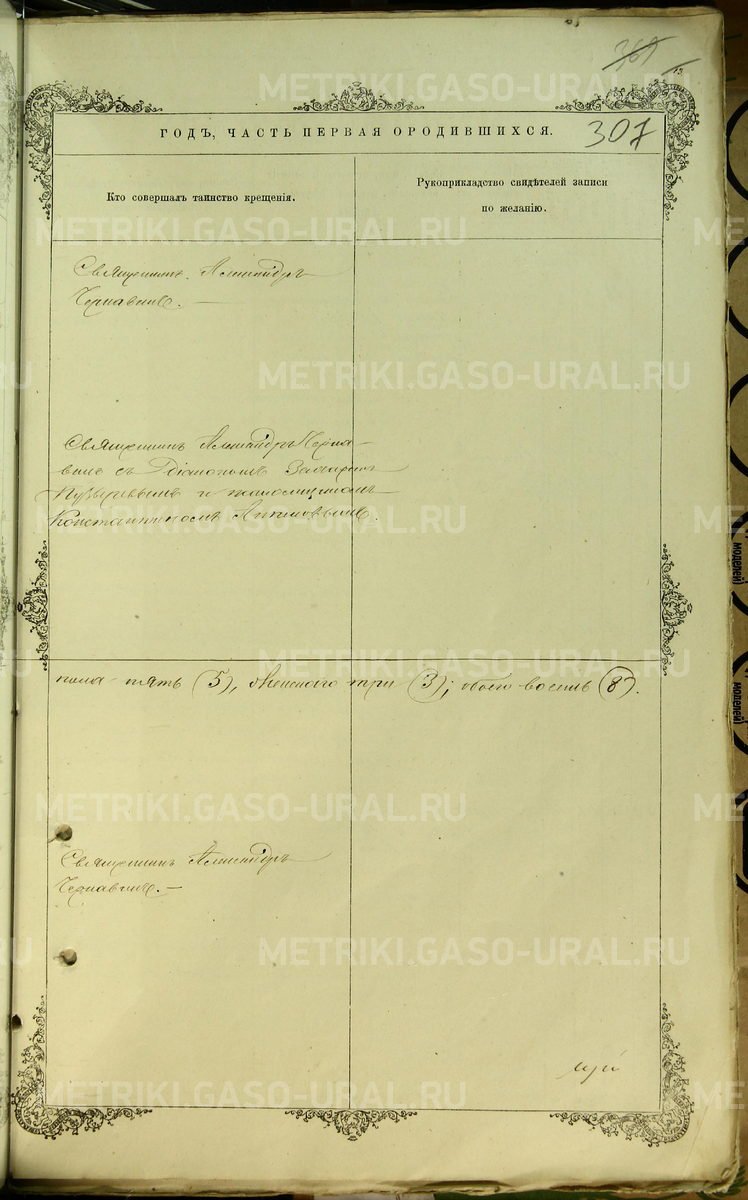 369
13.
307
ГОДЪ, ЧАСТЬ ПЕРВАЯ О РОДИВШИХСЯ.
Кто совершалъ таинство крещенія.
Рукоприкладство свидѣтелей записи
по желанію.
Священникъ Александръ
Чернавинъ. —
Священникъ Александръ Черна-
винъ съ Діакономъ
и псаломщикомъ
Константиномъ
пола пять (5), женскаго три (3); обоего восемь (8).
Священникъ Александръ
Чернавинъ. —
METRIKI.GASO-URAL.RU
моделей)
моделей)